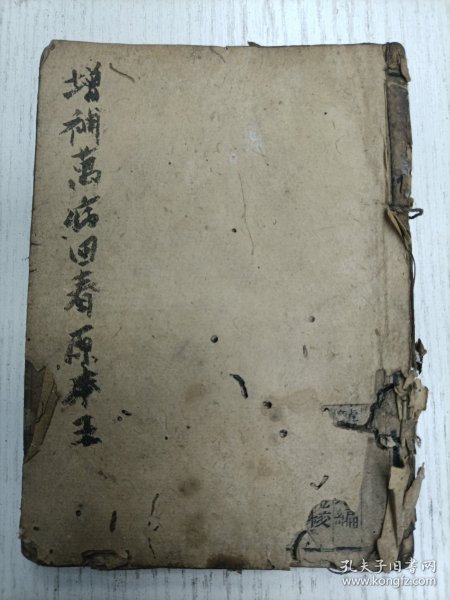 增補萬病回春原本王
編
孔夫子旧书网
www.kongfz.com